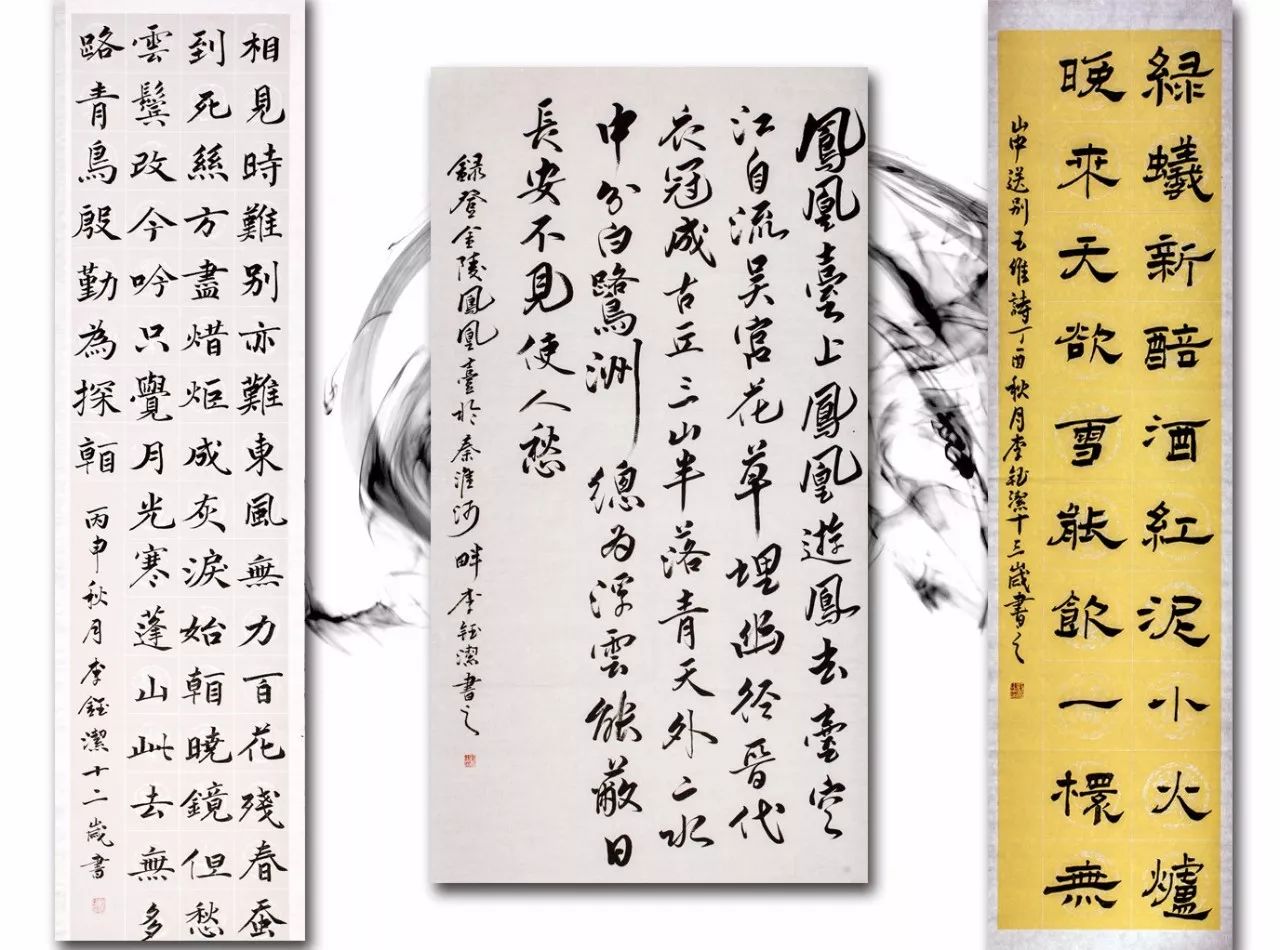 綠蟻新醅酒紅泥小火爐
晚來天欲雪能飲一檈無
山中送別王維詩丁酉秋月李鈺潔十三歲書之
鳳凰臺上鳳凰遊鳳去臺空
江自流吳宮花草埋幽徑晉代
衣冠成古丘三山半落青天外二水
中分白鷺洲總為浮雲能蔽日
長安不見使人愁
錄登金陵鳳凰臺於秦淮河畔李鈺潔書之
相見時難別亦難東風無力百花殘春蚕
到死絲方盡焟炬成灰淚始乾曉鏡但愁
雲鬢改今吟只覺月光寒蓬山此去無多
路青鳥殷勤為探看
丙申秋月李鈺潔十二歲書